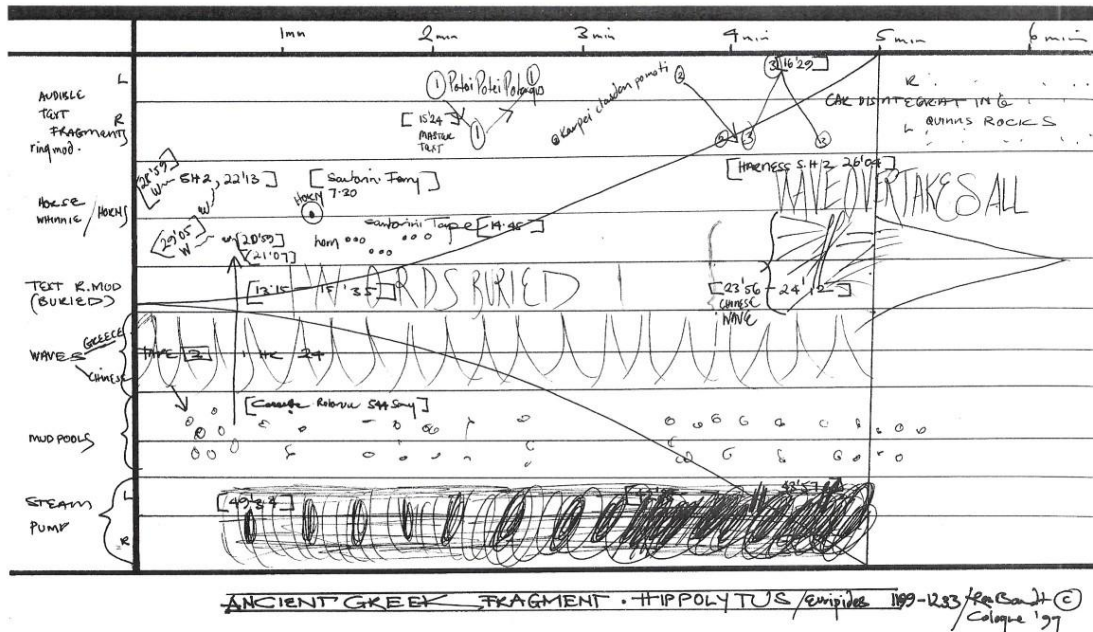 1mn 2min 3min 4min 5min 6min
AUDIBLE
TEXT
FRAGMENTS
ringmod.
L
R
① Potoi Potei Potagus ①
[15'24
MASTER
TEXT
①
② Karpei claudon pomati ②
② ③
③ [16'29]
③
R
CAR DISINTEGRATING
L QUINNS ROCKS
HORSE
WHINNIE / HORN
[28'59]
W SH2, 22'13]
[29'05]
W
[20'59]
(21'07)
[Santorini Ferry]
7.20
HORN
horn
Santorini Tape [14.45]
[HARNESS S.H/2 26'04]
WAVE OVERTAKES ALL
TEXT R.MOD
(BURIED)
WORDS BURIED
[23'56 - 24'12]
CHINESE
WAVE
WAVES
GREECE
CHINESE
TAPE 2 1 HR 24
MUD POOLS
[Cassette Rotorua 544 Sony]
STEAM
PUMP
L
R
[49'34]
ANCIENT GREEK FRAGMENT . HIPPOLYTUS / Euripides 1199-1233 / Ros Bandt ©
Cologne '97